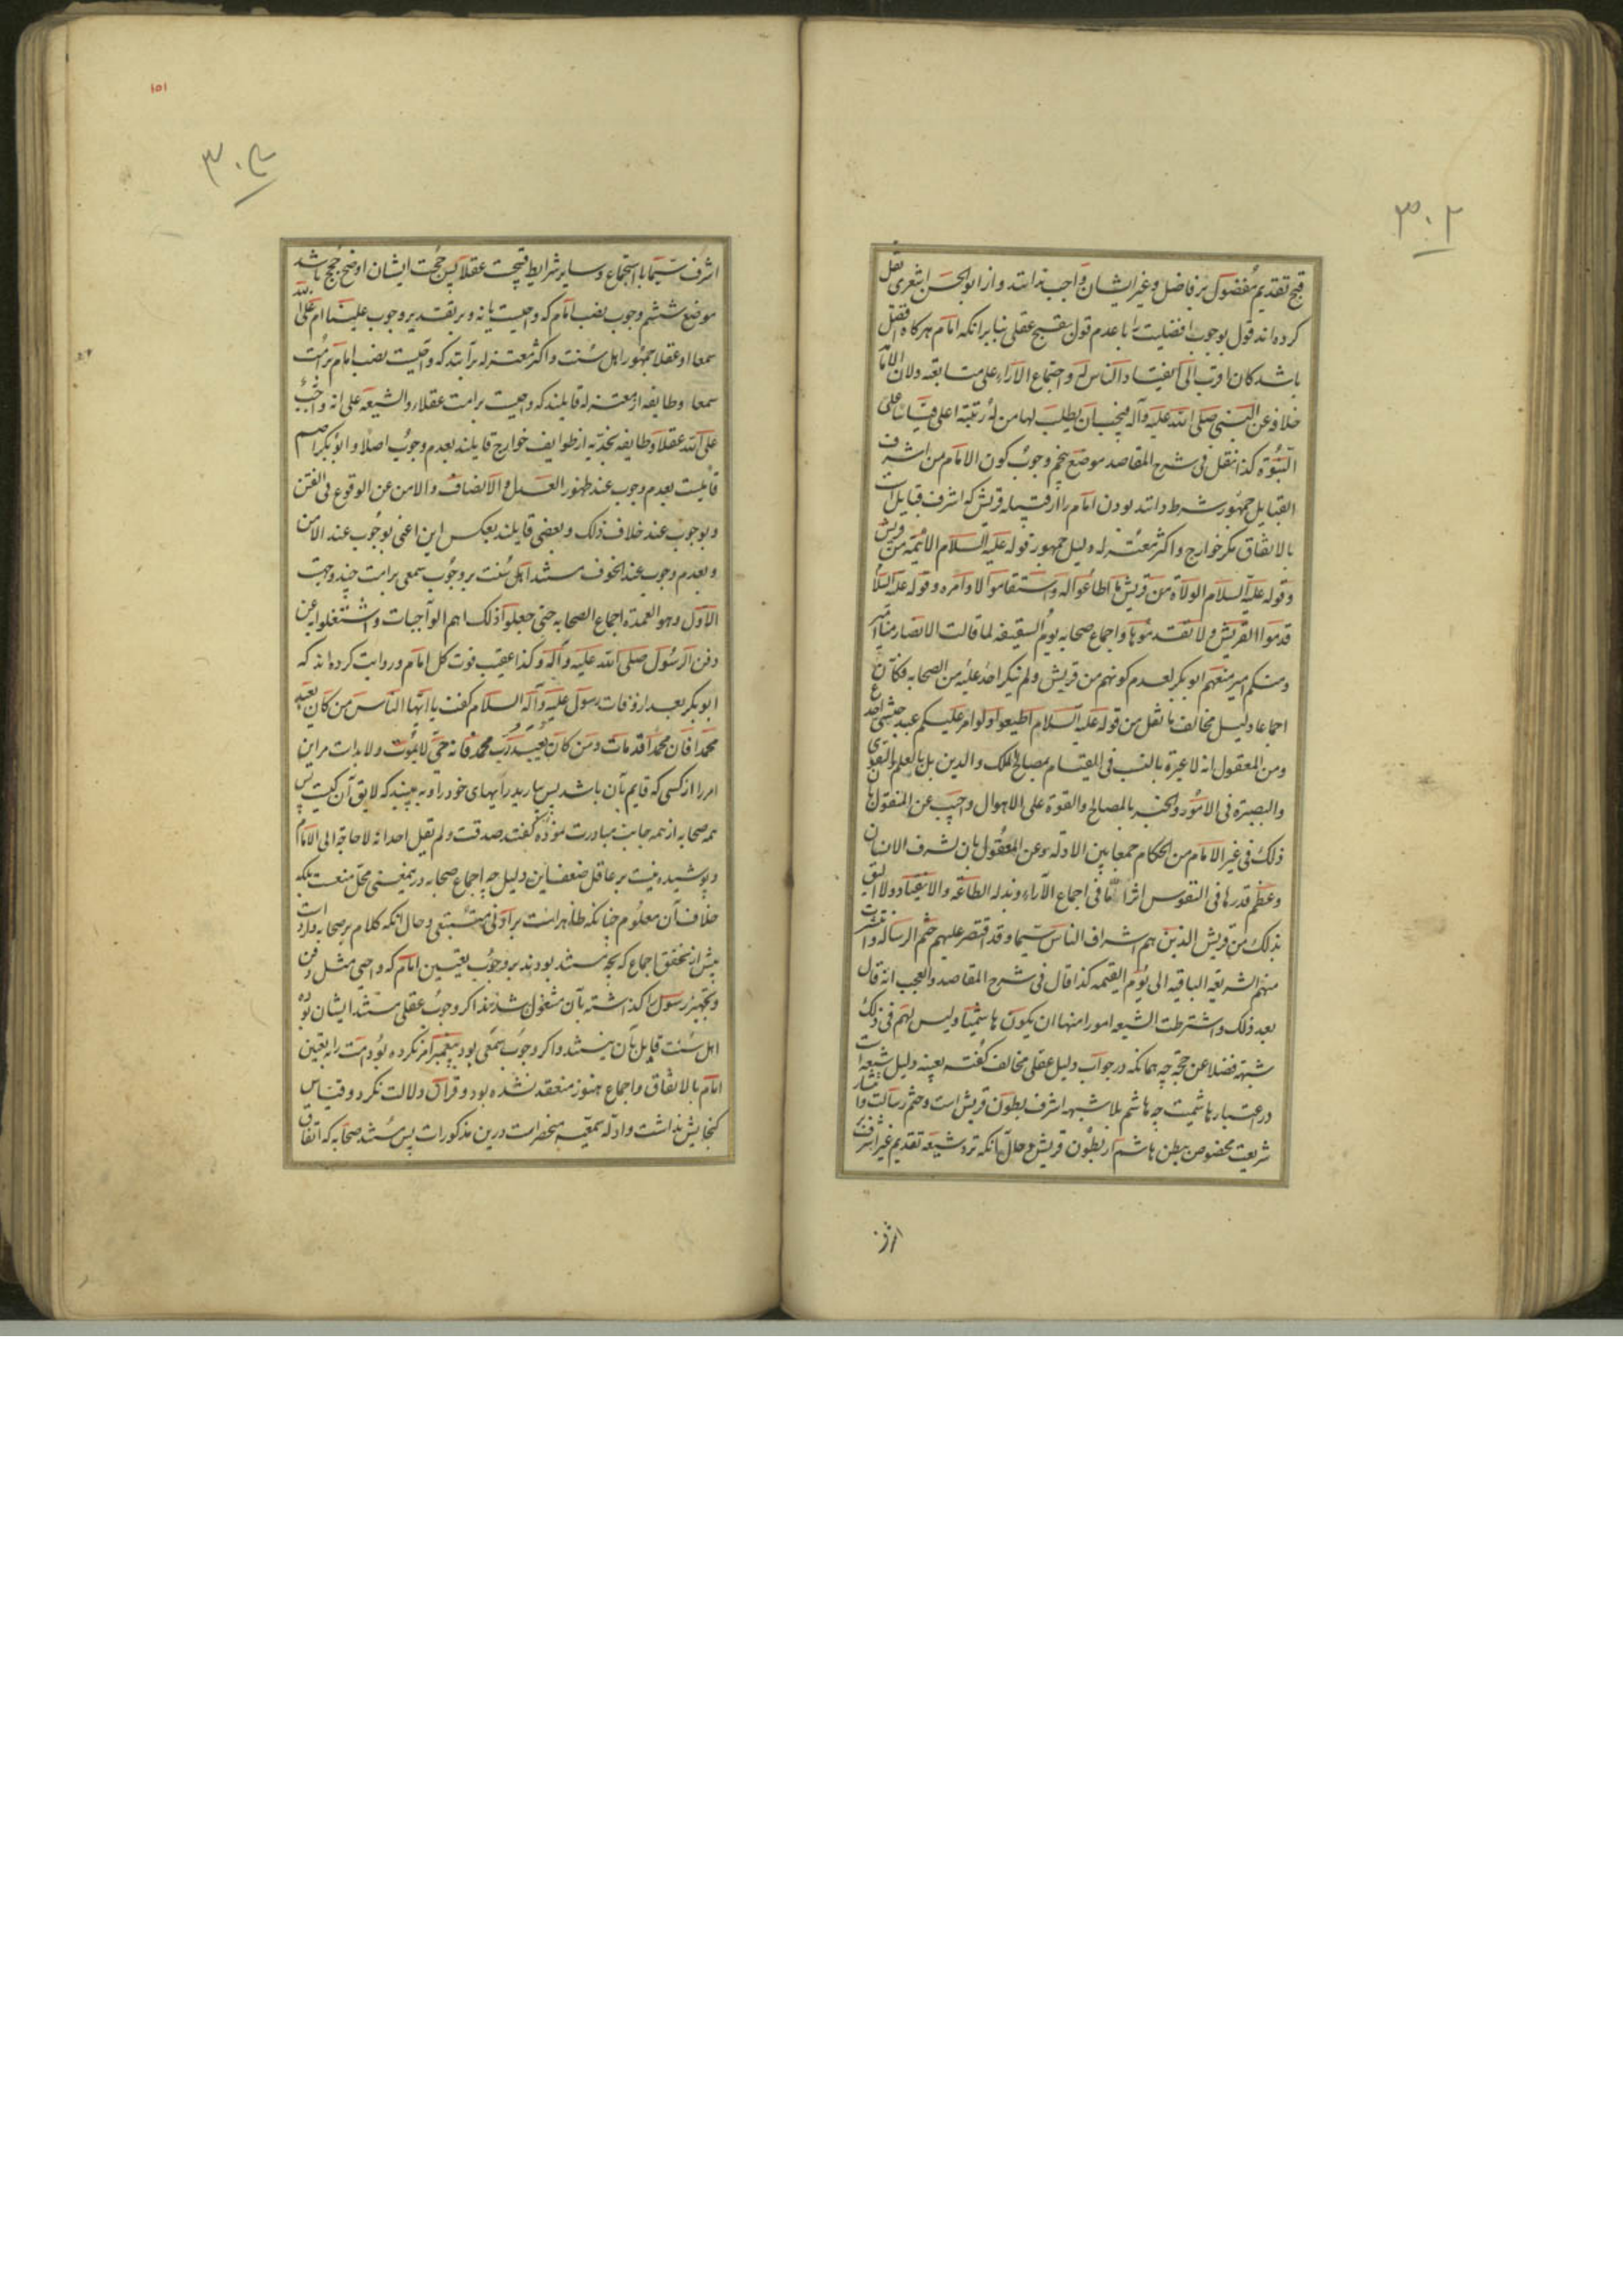 ٣٠٢
قبح تقدیم مفضول بر فاضل و غیر ایشان واجب ندانند و از ابوالحسن اشعری نقل
کرده‌اند قول بوجوب افضلیت را با عدم قول بتقبیح عقلی بنا بر انکه امام هرکاه افضل
باشد کان اقرب الی انقیاد الناس له و اجتماع الآراء علی متابعته و لان الامامة
خلافة عن النبی صلی الله علیه و آله فیجب ان یطلب لها من له رتبة اعلی قیاسا علی
النبوة کذا نقل فی شرح المقاصد موضع پنجم وجوب کون الامام من اشرف
القبایل جمهور شرط دانند بودن امام را از قبیله قریش که اشرف قبایل است
بالاتفاق مکر خوارج و اکثر معتزله دلیل جمهور قوله علیه السلام الائمة من قریش
و قوله علیه السلام الولاة من قریش ما اطاعوا لله و استقاموا لاوامره و قوله علیه السلام
قدموا القریش و لا تقدموها و اجماع صحابه یوم السقیفه لما قالت الانصار منا امیر
و منکم امیر منعهم ابو بکر لعدم کونهم من قریش و لم ینکر احد علیه من الصحابه فکان
اجماعا و دلیل مخالف ما نقل من قوله علیه السلام اطیعوا و لو امر علیکم عبد حبشی اجدع
و من المعقول انه لا عبرة بالنسب فی القیام بمصالح الملک و الدین بل بالعلم و التقوی
و البصیرة فی الامور و الخبره بالمصالح و القوة علی الاهوال و اجیب عن المنقول بان
ذلک فی غیر الامام من الحکام جمعا بین الادله و عن المعقول بان لشرف الانسان
و عظم قدرها فی النفوس اثرا تاما فی اجماع الآراء و بذله الطاعه و الانقیاد و لا الیق
بذلک من قریش الذین هم اشراف الناس سیما و قد اقتصر علیهم ختم الرساله و انتشرت
منهم الشریعة الباقیه الی یوم القیمه کذا قال فی شرح المقاصد و العجب انه قال
بعد ذلک و اشترطت الشیعه امورا منها ان یکون هاشمیا و لیس لهم فی ذلک
شبهة فضلا عن حجة چه همانکه در جواب دلیل عقلی مخالف کفته بعینه دلیل شیعه است
در اعتبار هاشمیت چه هاشم بلا شبهه اشرف بطون قریش است و ختم رسالت و انتشار
شریعت مخصوص بطن هاشم از بطون قریش و حال آنکه نزد شیعه تقدیم غیر اشرف بر
اشرف
١٥١
٣٠٣
اشرف سیما با استجماع و سایر شرایط قبیحست عقلا پس حجت ایشان اوضح حجج باشد
موضع ششم وجوب نصب امام که واجبست یا نه و بر تقدیر وجوب علینا ام علی الله
سمعا او عقلا جمهور اهل سنت و اکثر معتزله برآنند که واجبست نصب امام بر امت
سمعا و طایفه از معتزله قایلند که واجبست بر امت عقلا و الشیعه علی انه واجب
علی الله عقلا و طایفه نجدیه از طوایف خوارج قایلند بعدم وجوب اصلا و ابو بکر اصم
قایلست بعدم وجوب عند ظهور العدل و الانصاف و الامن عن الوقوع فی الفتن
و بوجوب عند خلاف ذلک و بعضی قایلند بعکس این اعنی بوجوب عند الامن
و بعدم وجوب عند الخوف مستند اهل سنت بر وجوب سمعی بر امت چند وجهست
الاول و هو العمدة اجماع الصحابه حتی جعلوا ذلک اهم الواجبات و اشتغلوا به عن
دفن الرسول صلی الله علیه و آله و کذا عقیب فوت کل امام و روایت کرده‌اند که
ابو بکر بعد از وفات رسول علیه و آله السلام کفت یا ایها الناس من کان یعبد
محمدا فان محمدا قد مات و من کان یعبد رب محمد فانه حی لا یموت و لا بد است مر این
امر را از کسی که قایم بآن باشد پس بیارید رایهای خود را و به بینید که لایق آن کیست پس
همه صحابه از همه جانب مبادرت نموده کفتند صدقت و لم یقل احد انه لا حاجة الی الامام
و پوشیده نیست بر عاقل ضعف این دلیل چه اجماع صحابه درین معنی محل منعست بلکه
خلاف آن معلوم چنانکه ظاهر است بر ادنی متتبعی و حال آنکه کلام بر صحابه وارد است
پیش از تحقق اجماع که بچه مستند بودند بر وجوب تعیین امام که واجبی مثل دفن
و تجهیز رسول را کذاشته بآن مشغول شدند اکر وجوب عقلی مستند ایشان بوده
اهل سنت قایل بآن نیستند و اکر وجوب سمعی بود پیغمبر امر نکرده بود امت را به تعیین
امام بالاتفاق و اجماع هنوز منعقد نشده بود و قرآن دلالت نکرد و قیاس
کنجایش نداشت و ادله سمعیه منحصر است درین مذکورات پس مستند صحابه که اتفاق